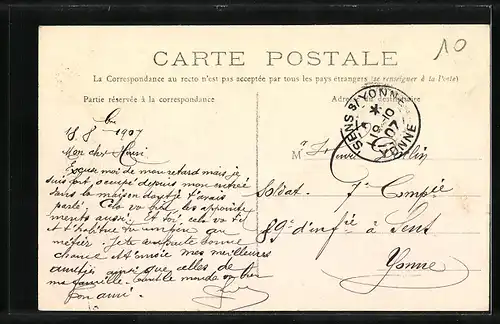 10
CARTE POSTALE
La Correspondance au recto n'est pas acceptée par tous les pays étrangers (se renseigner à la Poste)
Partie réservée à la correspondance
Adresse du destinataire
SENS S/YONNE
YONNE
18 8 1907
Mon cher Henri
Excuse moi de mon retard mais je
suis fort occupé depuis mon entrée
dans la maison dont je t'avais
parlé. Cela va bien, les appointe
ments aussi. Et toi, cela va t'il
et t'habitue tu un peu au
métier. Je te souhaite bonne
chance et t'envoie mes meilleures
amitiés ainsi que celles de
ma famille. tout le monde va bien
Ton ami
M
Soldat 7e Compie
89e d'infie à Sens
Yonne